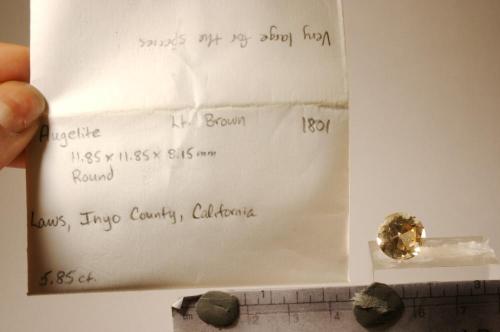 Very large for the species
Augelite Lt. Brown 1801
11.85 x 11.85 x 8.15 mm
Round
Laws, Inyo County, California
5.85 ct.
1 3
cm 2 4 6 7